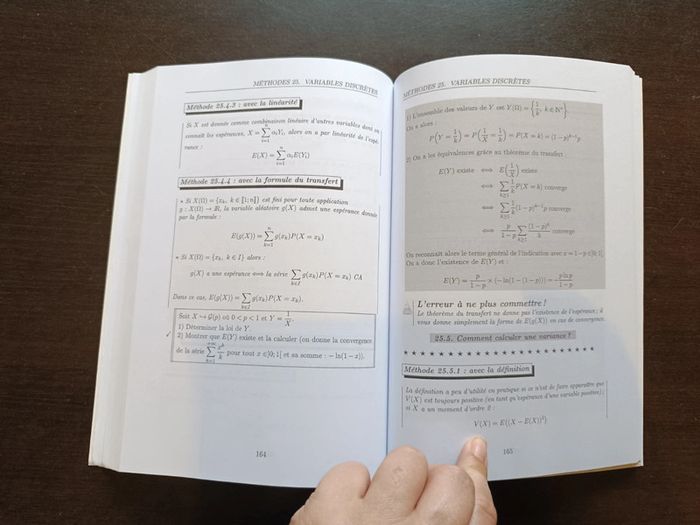 MÉTHODES 25. VARIABLES DISCRÈTES
Méthode 25.4.3 : avec la linéarité
Si X est donnée comme combinaison linéaire d'autres variables dont on
connaît les espérances, X = ∑_{i=1}^{n} α_i Y_i, alors on a par linéarité de l'espé-
rance :
E(X) = ∑_{i=1}^{n} α_i E(Y_i)
Méthode 25.4.4 : avec la formule du transfert
⋆ Si X(Ω) = {x_k, k ∈ [[1;n]]} est fini pour toute application
g : X(Ω) → ℝ, la variable aléatoire g(X) admet une espérance donnée
par la formule :
E(g(X)) = ∑_{k=1}^{n} g(x_k)P(X = x_k)
⋆ Si X(Ω) = {x_k, k ∈ I} alors :
g(X) a une espérance ⟺ la série ∑_{k∈I} g(x_k)P(X = x_k) CA
Dans ce cas, E(g(X)) = ∑_{k∈I} g(x_k)P(X = x_k).
Soit X ↪ G(p) où 0 < p < 1 et Y = 1/X.
1) Déterminer la loi de Y.
2) Montrer que E(Y) existe et la calculer (on donne la convergence
de la série ∑_{k=1}^{+∞} x^k/k pour tout x ∈]0; 1[ et sa somme : − ln(1 − x)).
164
MÉTHODES 25. VARIABLES DISCRÈTES
1) L'ensemble des valeurs de Y est Y(Ω) = {1/k, k ∈ ℕ*}.
On a alors :
P(Y = 1/k) = P(1/X = 1/k) = P(X = k) = (1 − p)^{k−1}p
2) On a les équivalences grâce au théorème du transfert :
E(Y) existe ⟺ E(1/X) existe
⟺ ∑_{k≥1} 1/k P(X = k) converge
⟺ ∑_{k≥1} 1/k (1 − p)^{k−1}p converge
⟺ p/(1 − p) ∑_{k≥1} (1 − p)^k/k converge
On reconnaît alors le terme général de l'indication avec x = 1 − p ∈]0; 1[
On a donc l'existence de E(Y) et :
E(Y) = p/(1 − p) × (− ln(1 − (1 − p))) = − p ln p/(1 − p)
L'erreur à ne plus commettre !
Le théorème du transfert ne donne pas l'existence de l'espérance ; il
vous donne simplement la forme de E(g(X)) en cas de convergence.
25.5. Comment calculer une variance ?
Méthode 25.5.1 : avec la définition
La définition a peu d'utilité en pratique si ce n'est de faire apparaître que
V(X) est toujours positive (en tant qu'espérance d'une variable positive) ;
si X a un moment d'ordre 2 :
V(X) = E((X − E(X))²)
165